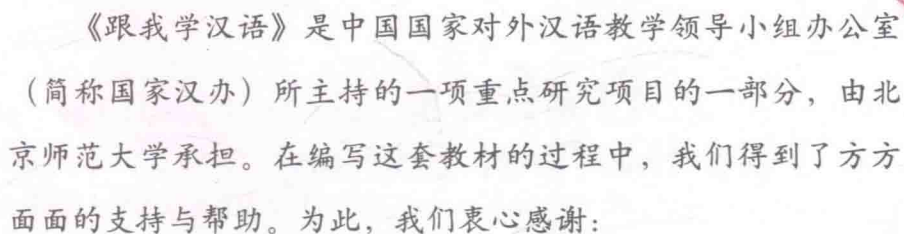 《跟我学汉语》是中国国家对外汉语教学领导小组办公室
（简称国家汉办）所主持的一项重点研究项目的一部分，由北
京师范大学承担。在编写这套教材的过程中，我们得到了方方
面面的支持与帮助。为此，我们衷心感谢：